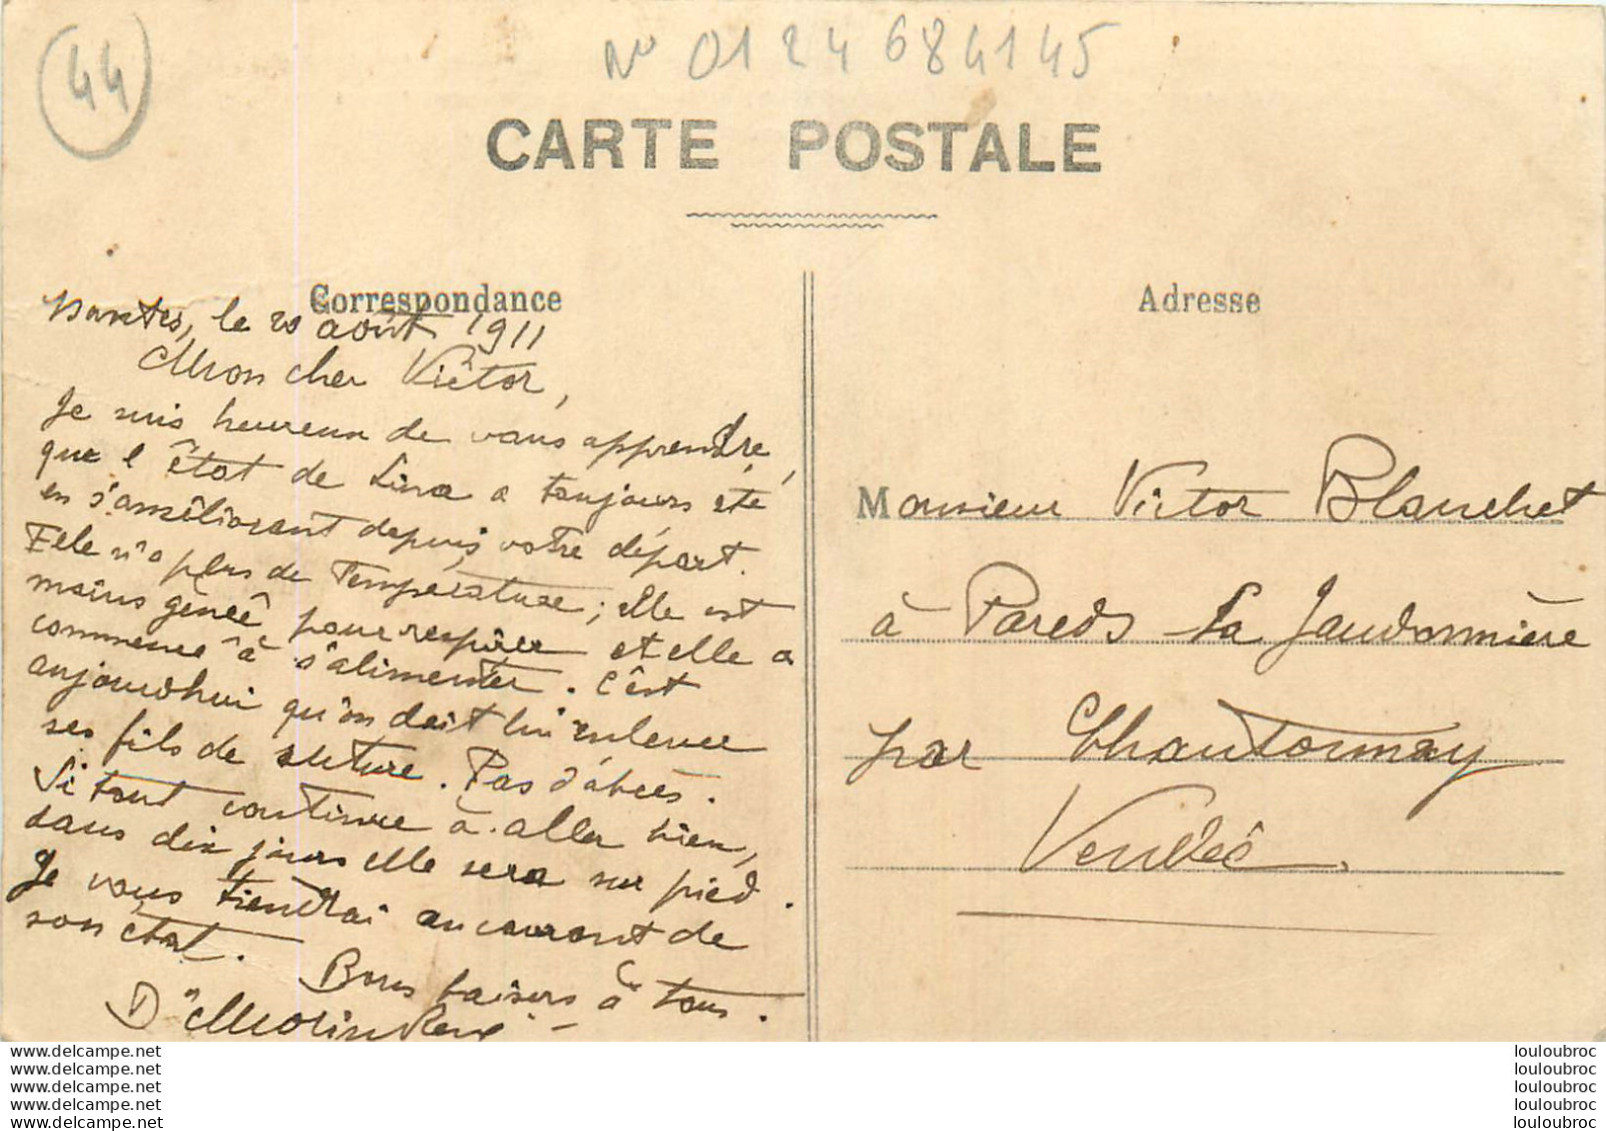 44
N° 01 24 684145
CARTE POSTALE
Correspondance
Nantes, le 20 août 1911
Mon cher Victor,
Je suis heureux de vous apprendre,
que l'état de Lina a toujours été
en s'améliorant depuis votre départ.
Elle n'a plus de température; elle est
moins gênée pour respirer et elle a
commencé à s'alimenter. C'est
aujourd'hui qu'on doit lui enlever
ses fils de suture. Pas d'abcès.
Si tout continue à aller bien,
dans dix jours elle sera sur pied.
Je vous tiendrai au courant de
son état. Bons baisers à tous.
Dr Morin René
Adresse
Monsieur Victor Blanchet
à Pareds La Jaudonnière
par Chantonnay
Vendée.
www.delcampe.net
www.delcampe.net
www.delcampe.net
www.delcampe.net
www.delcampe.net
louloubroc
louloubroc
louloubroc
louloubroc
louloubroc